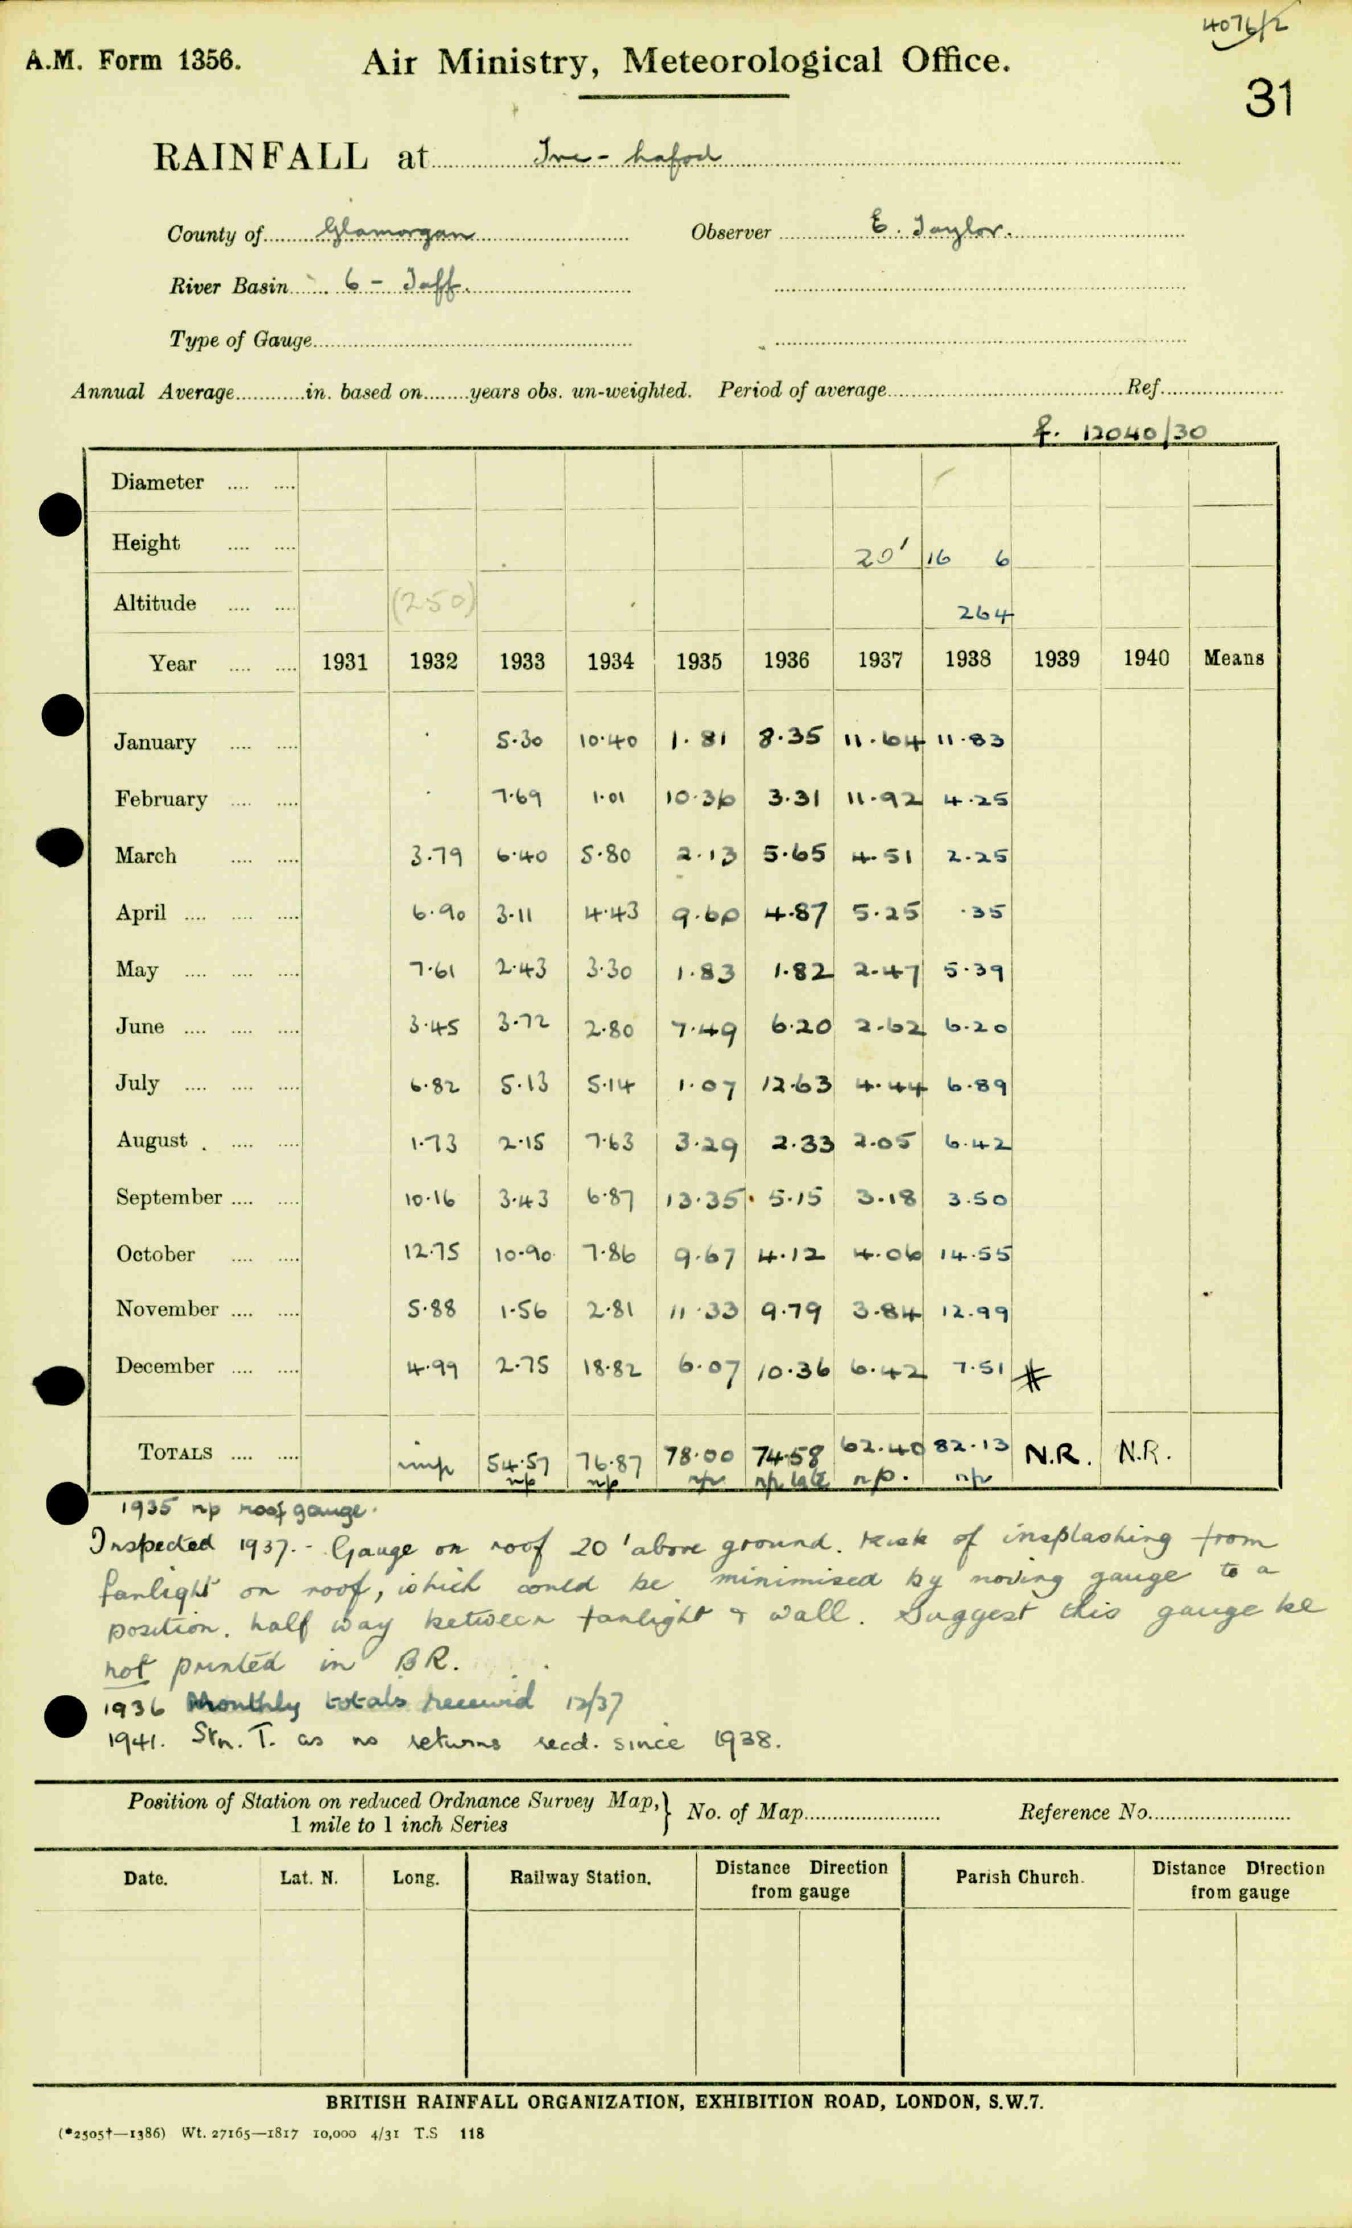 4076/2
A.M. Form 1356.
Air Ministry, Meteorological Office.
31
RAINFALL at Tre-hafod
County of Glamorgan Observer E. Taylor.
River Basin 6 - Taff.
Type of Gauge
Annual Average in. based on years obs. un-weighted. Period of average Ref.
f. 12040/30
Diameter
Height 20' 16 6
Altitude (250) 264
Year 1931 1932 1933 1934 1935 1936 1937 1938 1939 1940 Means
January 5.30 10.40 1.81 8.35 11.64 11.83
February 7.69 1.01 10.36 3.31 11.92 4.25
March 3.79 6.40 5.80 2.13 5.65 4.51 2.25
April 6.90 3.11 4.43 9.60 4.87 5.25 .35
May 7.61 2.43 3.30 1.83 1.82 2.47 5.39
June 3.45 3.72 2.80 7.49 6.20 2.62 6.20
July 6.82 5.13 5.14 1.07 12.63 4.44 6.89
August 1.73 2.15 7.63 3.29 2.33 2.05 6.42
September 10.16 3.43 6.87 13.35 5.15 3.18 3.50
October 12.75 10.90 7.86 9.67 4.12 4.06 14.55
November 5.88 1.56 2.81 11.33 9.79 3.84 12.99
December 4.99 2.75 18.82 6.07 10.36 6.42 7.51 #
TOTALS imp 54.57 76.87 78.00 74.58 62.40 82.13 N.R. N.R.
np np np np late np. np
1935 np roof gauge.
Inspected 1937. - Gauge on roof 20' above ground. Risk of insplashing from
fanlight on roof, which could be minimised by moving gauge to a
position. half way between fanlight & wall. Suggest this gauge be
not printed in BR.
1936 Monthly totals received 12/37
1941. Stn. T. as no returns recd. since 1938.
Position of Station on reduced Ordnance Survey Map, } No. of Map Reference No.
1 mile to 1 inch Series
Date. Lat. N. Long. Railway Station. Distance Direction from gauge Parish Church. Distance Direction from gauge
BRITISH RAINFALL ORGANIZATION, EXHIBITION ROAD, LONDON, S.W.7.
(*2505†—1386) Wt. 27165—1817 10,000 4/31 T.S 118